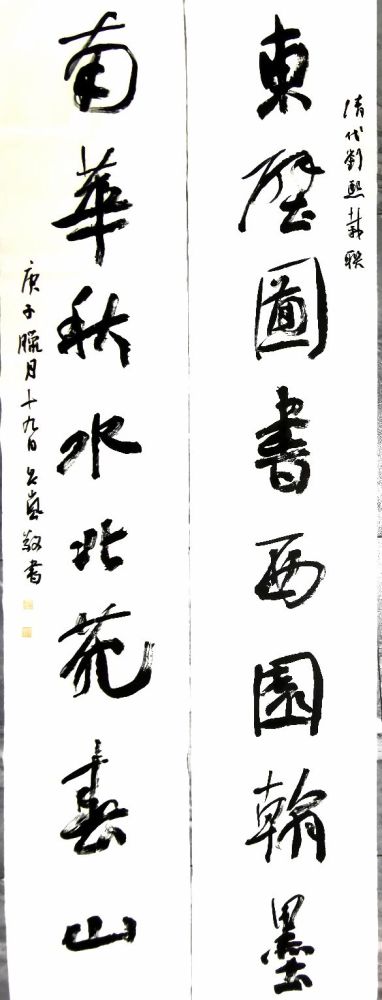 清代劉熙載联
東壁圖書西園翰墨
南華秋水北苑春山
庚子臘月十九日 敬書